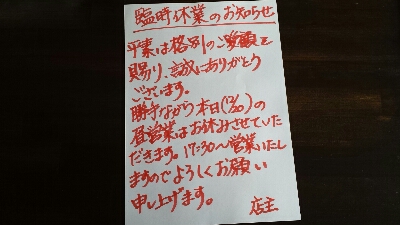 臨時休業のお知らせ
平素は格別のご愛顧を
賜り、誠にありがとう
ございます。
勝手ながら本日(12/20)の
昼営業はお休みさせていた
だきます。17:30～営業いたし
ますのでよろしくお願い
申し上げます。
店主